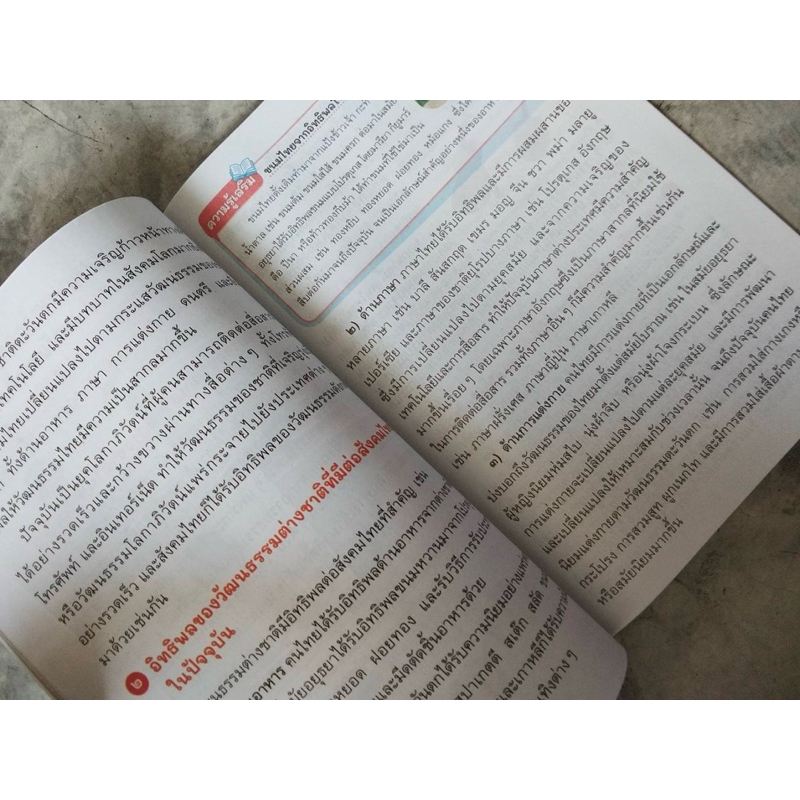 ชาติตะวันตกมีความเจริญก้าวหน้าทาง
เทคโนโลยี และมีบทบาทในสังคมโลกมากขึ้น
ไทยเปลี่ยนแปลงไปตามกระแสวัฒนธรรม
ทั้งด้านอาหาร ภาษา การแต่งกาย ดนตรี และ
ให้วัฒนธรรมไทยมีความเป็นสากลมากขึ้น
ปัจจุบันเป็นยุคโลกาภิวัตน์ที่ผู้คนสามารถติดต่อสื่อสาร
ได้อย่างรวดเร็วและกว้างขวางผ่านทางสื่อต่าง ๆ ทั้ง
โทรศัพท์ และอินเทอร์เน็ต ทำให้วัฒนธรรมของชาติที่เจริญ
หรือวัฒนธรรมโลกาภิวัตน์แพร่กระจายไปยังประเทศต่าง
อย่างรวดเร็ว และสังคมไทยก็ได้รับอิทธิพลของวัฒนธรรม
มาด้วยเช่นกัน
๒ อิทธิพลของวัฒนธรรมต่างชาติที่มีต่อสังคมไทย
ในปัจจุบัน
วัฒนธรรมต่างชาติมีอิทธิพลต่อสังคมไทยที่สำคัญ เช่น
อาหาร คนไทยได้รับอิทธิพลด้านอาหารจากต่างชาติ
สมัยอยุธยาได้รับอิทธิพลขนมหวานมาจาก
หยอด ฝอยทอง และรับวิธีการรับประ
และมีดตัดชิ้นอาหารด้วย
ตันตกได้รับความนิยมอย่าง
สปาเกตตี สเต๊ก สลัด
และเกาหลีก็ได้รับความ
เทิงต่าง ๆ
ความรู้เสริม
ขนมไทยจากอิทธิพล
ขนมไทยดั้งเดิมทำมาจากแป้งข้าวเจ้า กะทิ
น้ำตาล เช่น ขนมต้ม ขนมใส่ไส้ ขนมครก ต่อมาในสมัย
อยุธยาได้รับอิทธิพลขนมแบบโปรตุเกส โดยมารีอา กียูมาร์
ดือ ปีนา หรือท้าวทองกีบม้า ได้ทำขนมที่ใช้ไข่มาเป็น
ส่วนผสม เช่น ทองหยิบ ทองหยอด ฝอยทอง หม้อแกง ซึ่งได้
สืบต่อกันมาจนถึงปัจจุบัน จนเป็นเอกลักษณ์สำคัญอย่างหนึ่งของอาห
๒) ด้านภาษา ภาษาไทยได้รับอิทธิพลและมีการผสมผสานของ
หลายภาษา เช่น บาลี สันสกฤต เขมร มอญ จีน ชวา พม่า มลายู
เปอร์เซีย และภาษาของชาติยุโรปบางภาษา เช่น โปรตุเกส อังกฤษ
ซึ่งมีการเปลี่ยนแปลงไปตามยุคสมัย และจากความเจริญของ
เทคโนโลยีและการสื่อสาร ทำให้ปัจจุบันภาษาต่างประเทศมีความสำคัญ
มากขึ้นเรื่อย ๆ โดยเฉพาะภาษาอังกฤษซึ่งเป็นภาษาสากลที่นิยมใช้
ในการติดต่อสื่อสาร รวมทั้งภาษาอื่น ๆ ก็มีความสำคัญมากขึ้นเช่นกัน
เช่น ภาษาฝรั่งเศส ภาษาญี่ปุ่น ภาษาเกาหลี
๓) ด้านการแต่งกาย คนไทยมีการแต่งกายที่เป็นเอกลักษณ์และ
บ่งบอกถึงวัฒนธรรมของไทยมาตั้งแต่สมัยโบราณ เช่น ในสมัยอยุธยา
ผู้หญิงนิยมห่มสไบ นุ่งผ้าจีบ หรือนุ่งผ้าโจงกระเบน ซึ่งลักษณะ
การแต่งกายจะเปลี่ยนแปลงไปตามแต่ละยุคสมัย และมีการพัฒนา
และเปลี่ยนแปลงให้เหมาะสมกับช่วงเวลานั้น จนถึงปัจจุบันคนไทย
นิยมแต่งกายตามวัฒนธรรมตะวันตก เช่น การสวมใส่กางเกง
กระโปรง การสวมสูท ผูกเนกไท และมีการสวมใส่เสื้อผ้าตาม
หรือสมัยนิยมมากขึ้น